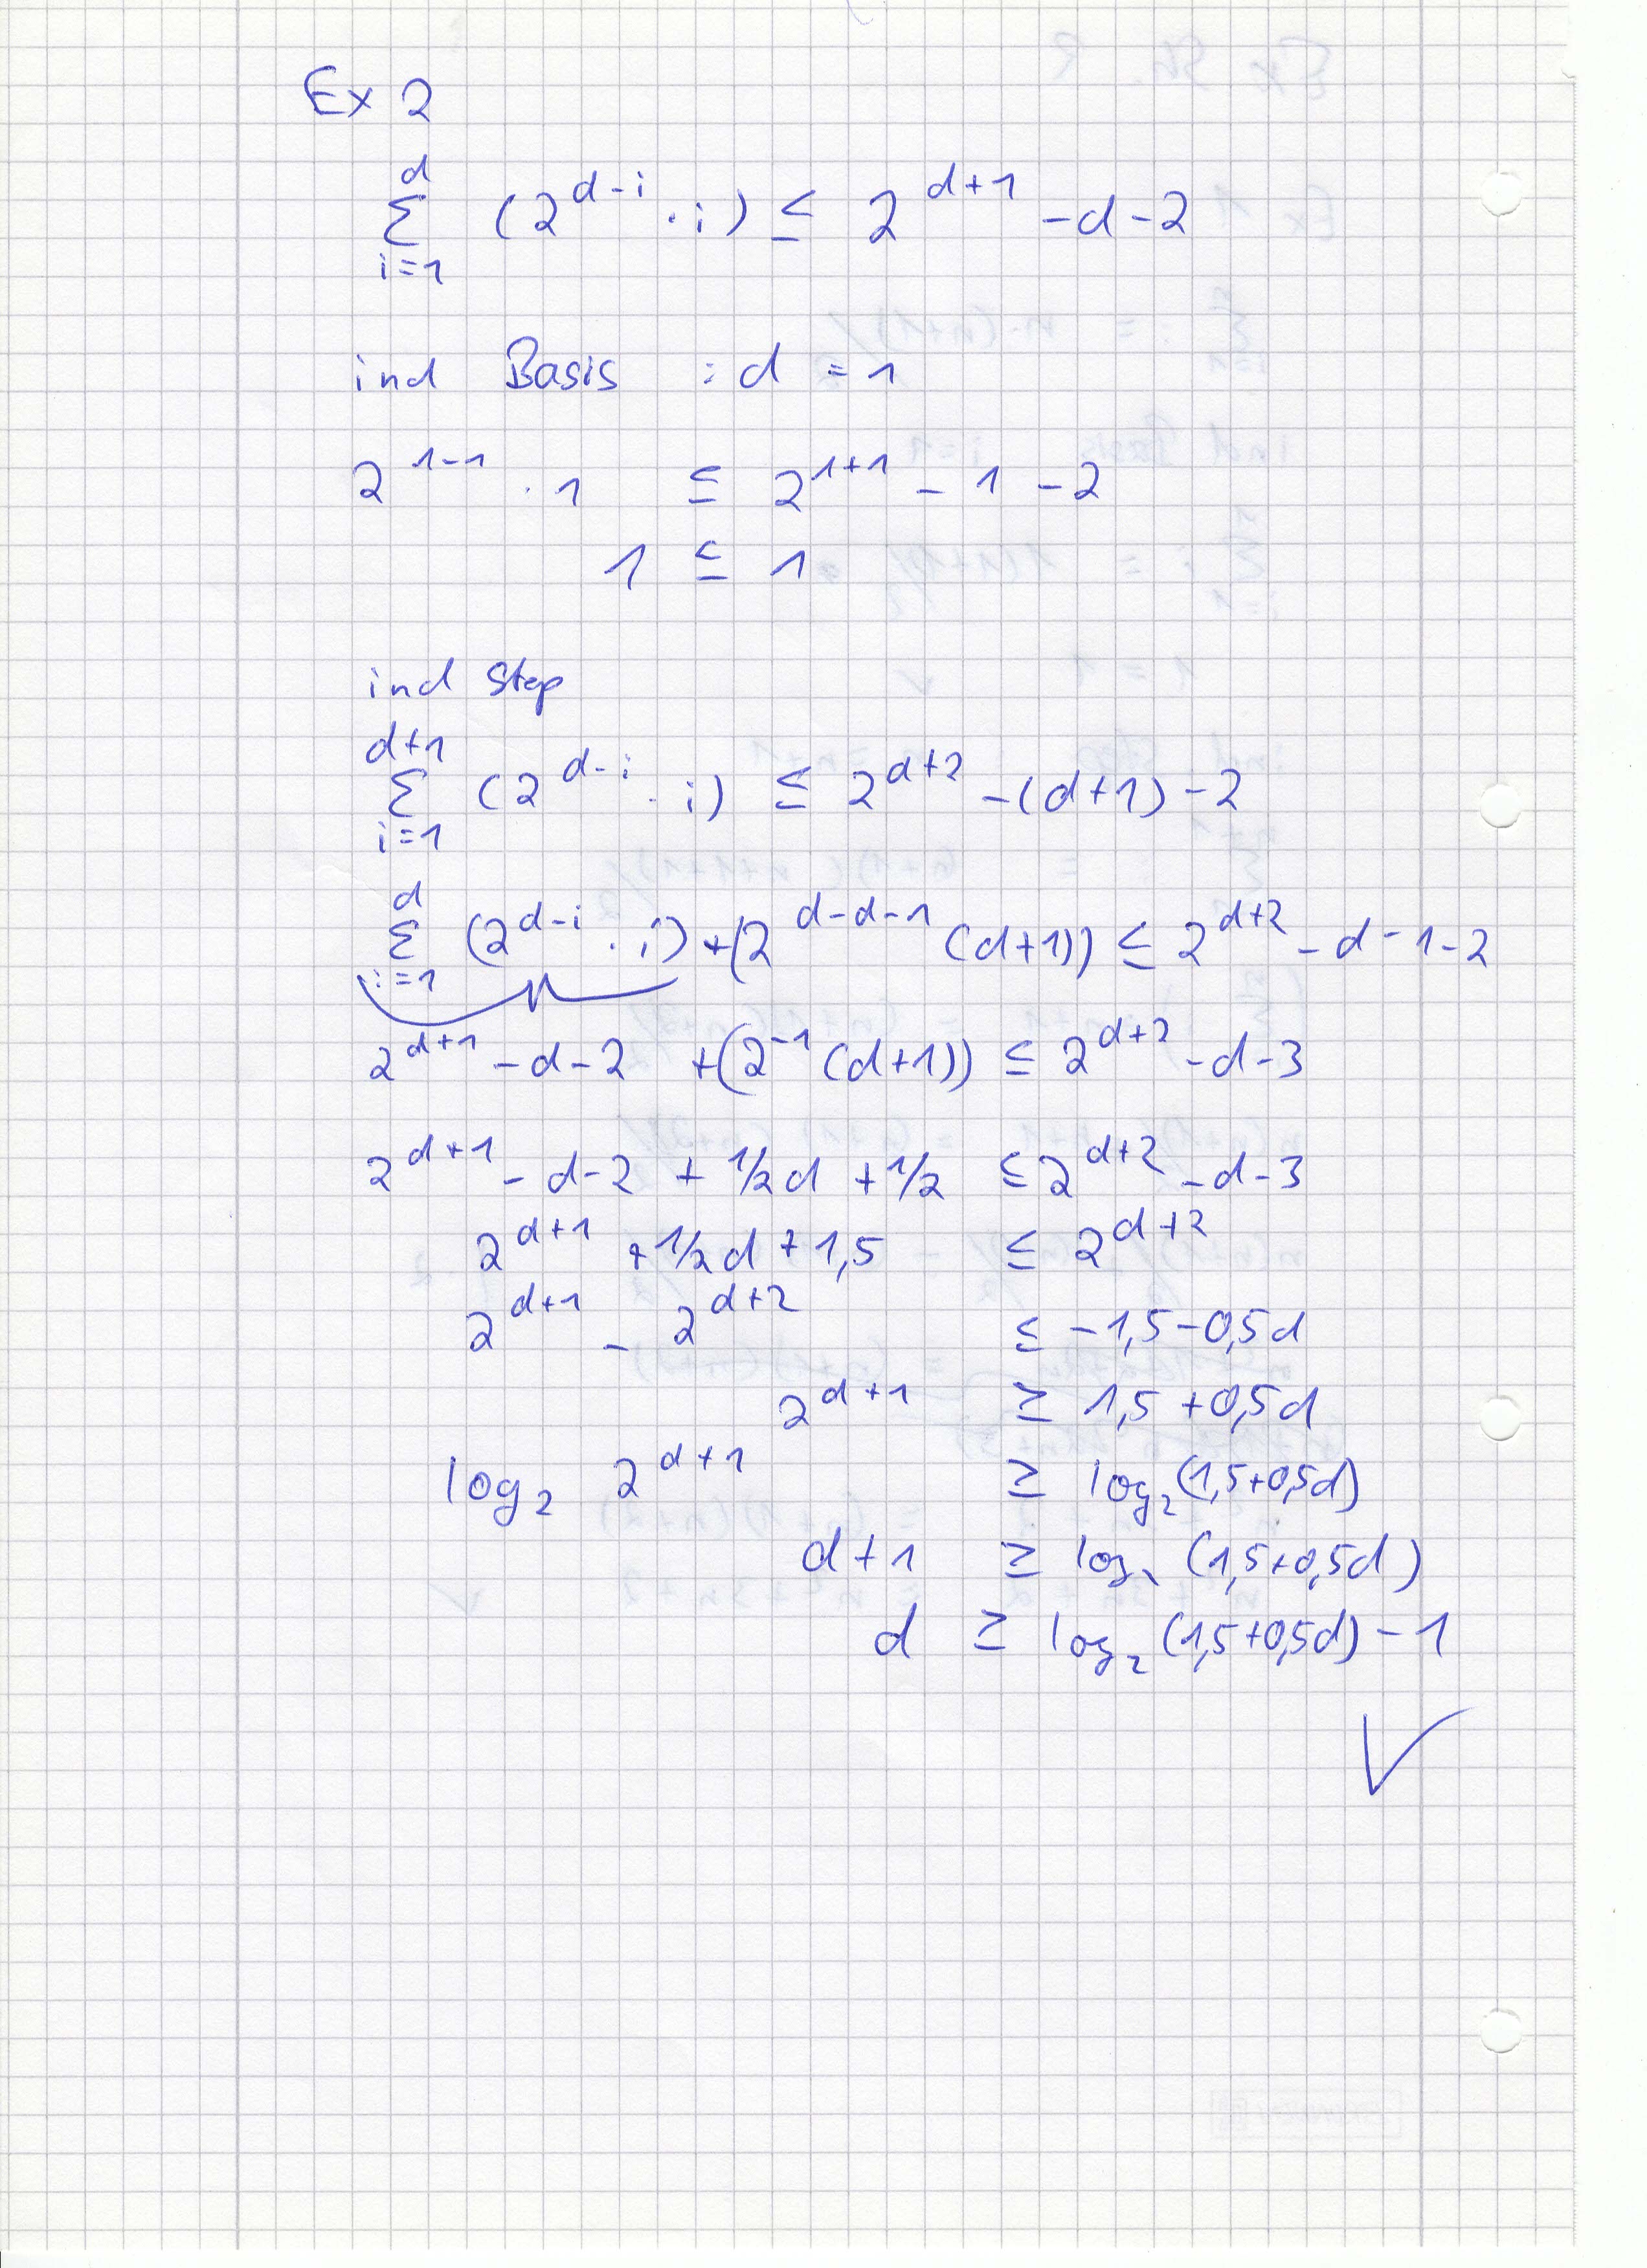 Ex 2
d
Σ (2^{d-i} · i) ≤ 2^{d+1} - d - 2
i=1
ind Basis : d = 1
2^{1-1} · 1 ≤ 2^{1+1} - 1 - 2
1 ≤ 1
ind Step
d+1
Σ (2^{d-i} · i) ≤ 2^{d+2} - (d+1) - 2
i=1
d
Σ (2^{d-i} · i) + (2^{d-d-1} (d+1)) ≤ 2^{d+2} - d - 1 - 2
i=1
2^{d+1} - d - 2 + (2^{-1} (d+1)) ≤ 2^{d+2} - d - 3
2^{d+1} - d - 2 + 1/2 d + 1/2 ≤ 2^{d+2} - d - 3
2^{d+1} + 1/2 d + 1,5 ≤ 2^{d+2}
2^{d+1} - 2^{d+2} ≤ -1,5 - 0,5d
2^{d+1} ≥ 1,5 + 0,5d
log₂ 2^{d+1} ≥ log₂(1,5+0,5d)
d+1 ≥ log₂ (1,5+0,5d)
d ≥ log₂ (1,5+0,5d) - 1
✓